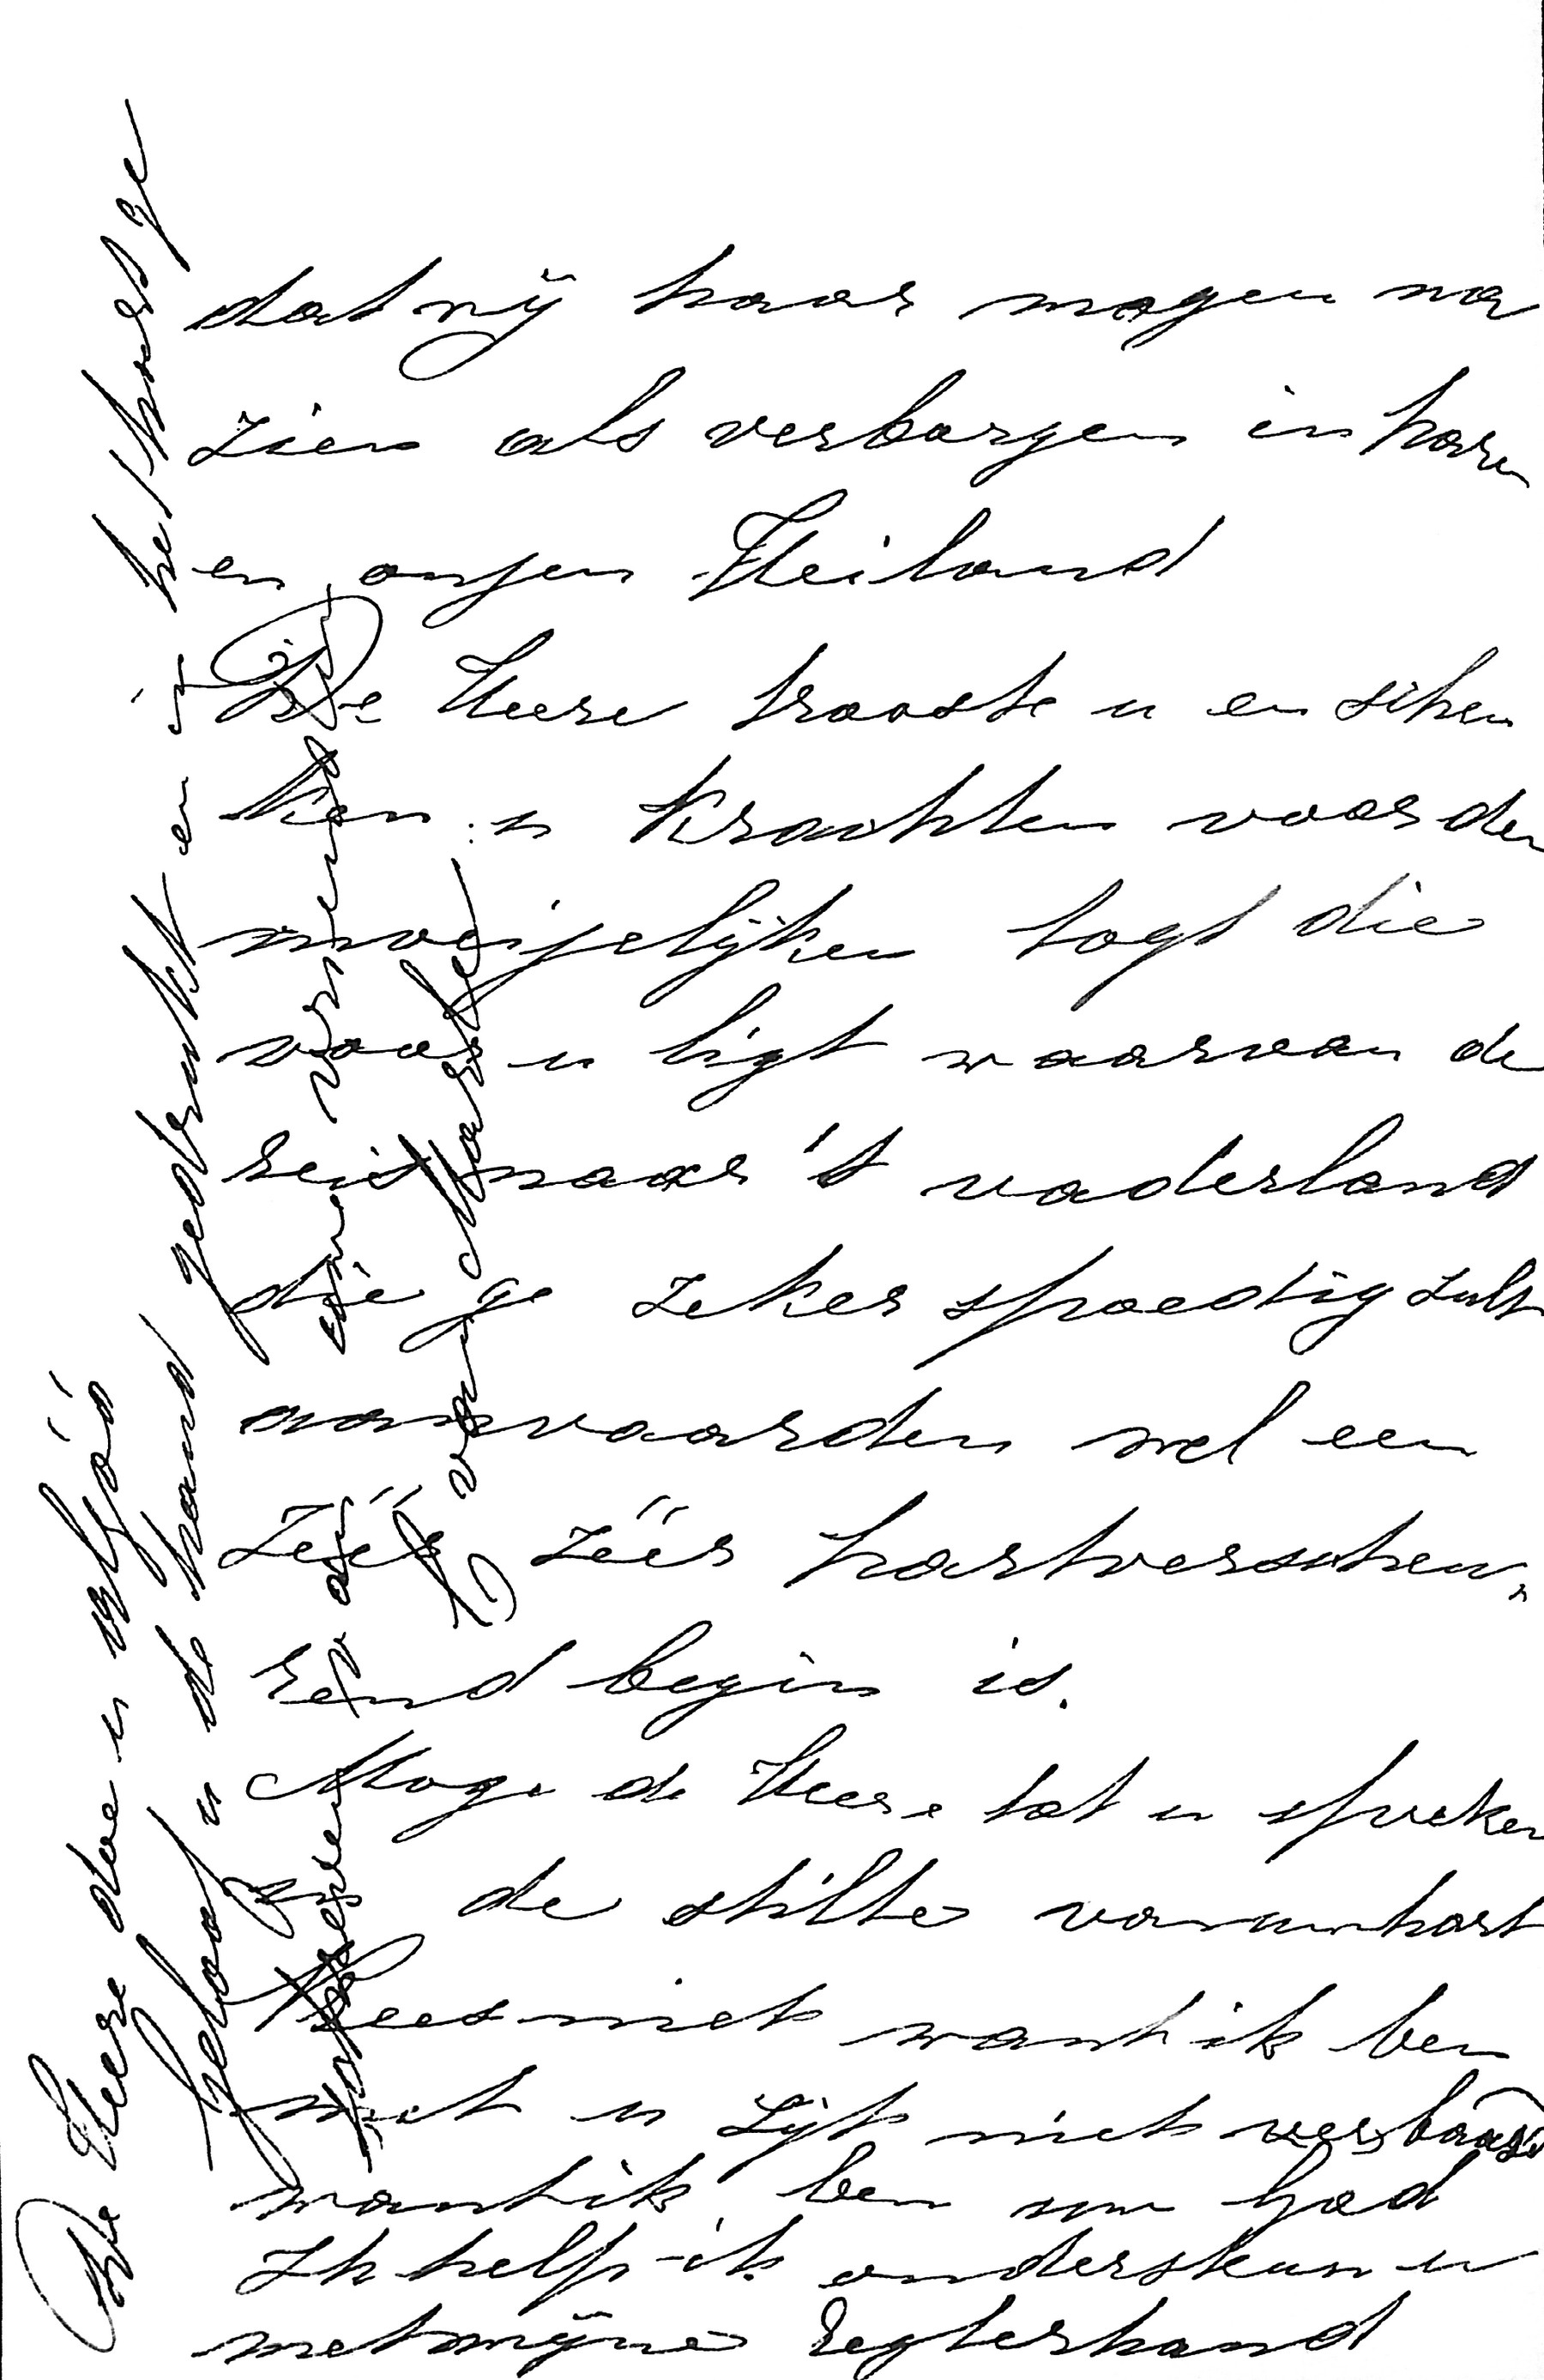 dat wij haar mogen na
zien als verborgen in haren
en onzen Heiland
De Heere trooste u en schen
ken u krachten voor den
moeijelijken togt die
voor u ligt waarvan de
reis naar 't vaderland
die ge zeker spoedig zult
aanvaarden wel een
zéér zéér hartverscheu„
rend begin is.
Moge de Heere tot u spreken
in de stilte van uw hart
Vrees niet want ik ben
met u zijt niet verbaasd
want ik ben uw God
Ik help ik ondersteun u
met mijne regterhand
De Heere doe u alzóó
Geloof u de hand gedrukt en in het harte ge
door uw vriend
van Marle